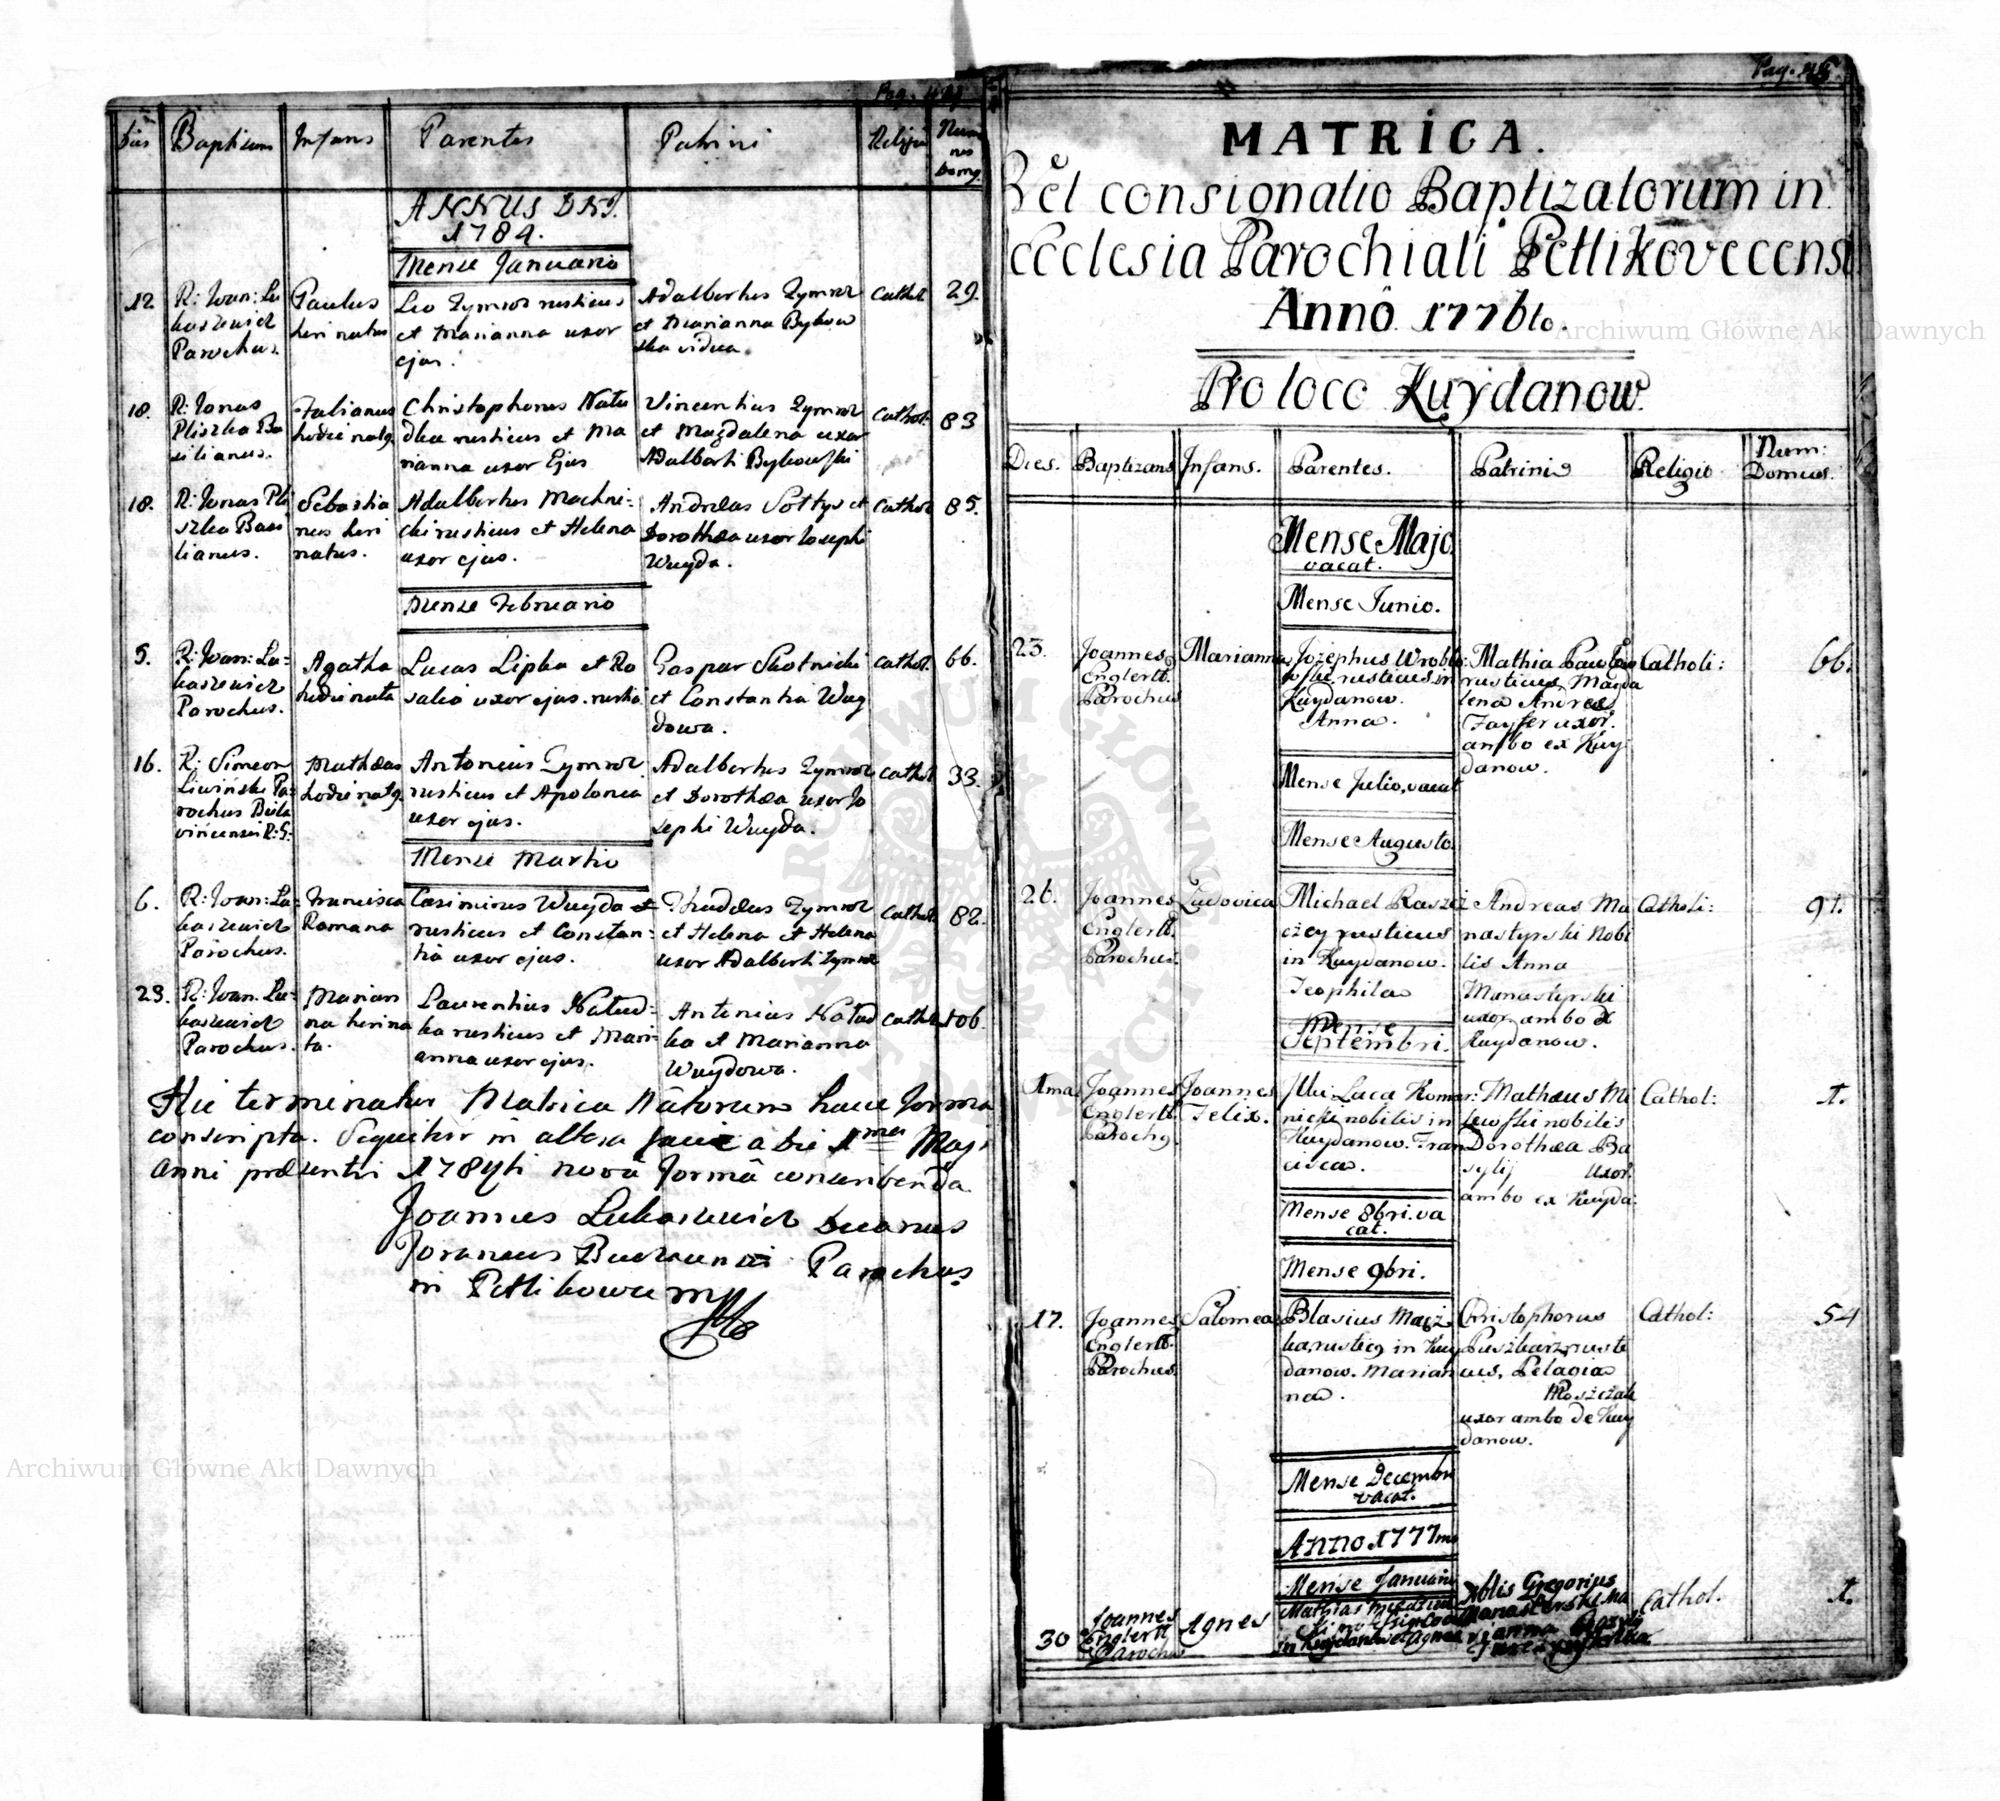 Dies
Baptisans
Infans
Parentes
Patrini
Religio
Nume
rus
Domy
ANNUS DNI.
1784.
Mense Januario
12.
R: Joan: Lu
kasiewicz
Parochus.
Paulus
heri natus
Leo Zymroz rusticus
et Marianna uxor
ejus.
Adalbertus Zymroz
et Marianna Bykow
ska vidua
Cathol:
29.
18.
R: Jonas
Pliszka Ba
silianus.
Fabianus
hodie natg
Christophorus Natu
dka rusticus et Ma
rianna uxor Ejus
Vincentius Zymroz
et Magdalena uxor
Adalberti Bykowski
Cathol:
83
18.
R: Jonas Pli
szka Basi
lianus.
Sebastia
nus heri
natus.
Adalbertus Machni=
cki rusticus et Helena
uxor ejus.
Andreas Soltys et
Dorothea uxor Josephi
Wuyda.
Cathol
85.
Mense Februario
5.
R: Joan: Lu=
kasiewicz
Parochus.
Agatha
hodie nata
Lucas Lipka et Ro
salia uxor ejus. rustici
Gaspar Skotnicki
et Constantia Wuy
dowa.
Cathol.
66.
16.
R: Simeon
Liwinski Pa=
rochus
R: G:
Mathæus
hodie natg
Antonius Zymroz
rusticus et Apolonia
uxor ejus.
Adalbertus Zymroz
et Dorothea uxor Jo
sephi Wuyda.
Cathol
33.
Mense Martio
6.
R: Joan: Lu=
kasiewicz
Parochus.
Francisca
Romana
Casimirus Wuyda et
rusticus et Constan=
tia uxor ejus.
Thaddeus Zymroz
et Helena et Helena
uxor Adalberti Zymroz
Cathol
82.
23.
R: Joan. Lu=
kasiewicz
Parochus.
Marian
na heri na
ta.
Laurentius Natud=
ka rusticus et Mari=
anna uxor ejus.
Antonius Natud
ka et Marianna
Wuydowa.
Cathol
106.
Hic terminatur Matrica Natorum hace forma
conscripta. Sequitur in altera facie a die 1ma Maji
anni præsentis 1784ti nova forma conscribenda
Joannes Lukasiewicz Decanus
Foraneus Buczacensis Parochus
in Petlikowce mp
MATRICA.
Vel consignatio Baptizatorum in
Ecclesia Parochiali Petlikovecensi
Anno 1776to.
Pro loco Kuydanow.
Dies.
Baptizans
Infans.
Parentes.
Patrini
Religio
Num:
Domus.
Mense Majo
vacat.
Mense Junio.
23.
Joannes
Englertt.
Parochus
Marianna
Jozephus Wroble
wski rusticus in
Kuydanow.
Anna.
Mathia
rusticus, Magda
lena Andreæ
Fayfer uxor.
ambo ex Kuy
danow.
Catholi:
66.
Mense Julio, vacat
Mense Augusto.
26.
Joannes
Englertt.
Parochus.
Ludovica
Michael Raszcz
czcy rusticus
in Kuydanow.
Teophila
Andreas Ma
nastyrski Nobi
lis Anna
Manastyrski
uxor ambo de
Kuydanow.
Catholi:
91.
Mense
Septembri.
1ma
Joannes
Englertt.
Parochg.
Joannes
Felix.
Luca Komar
nicki nobilis in
Kuydanow. Fran
cisca.
Mathæus Mi
lewski nobilis
Dorothæa Ba
sylij uxor.
ambo ex Kuyda:
Cathol:
1.
Mense 8bri. va
cat.
Mense 9bri.
17.
Joannes
Englertt.
Parochus.
Salomea
Blasius Maz
ka rusticg in Kuy
danow. Marian
na.
Christophorus
Puszkarz rusti
cus, Pelagia
Moszczak
uxor ambo de Kuy
danow.
Cathol:
54
Mense Decembri
vacat.
Anno 1777mo
Mense Januario
30
Joannes
Englertt
Parochus
Agnes
Mathias
in Kuydanow et Agnes
Nblis Gregorius
Manasterski. Ma
rianna
Cathol.
1.
Archiwum Główne Akt Dawnych
Archiwum Główne Akt Dawnych
ARCHIWUM GŁÓWNE AKT DAWNYCH